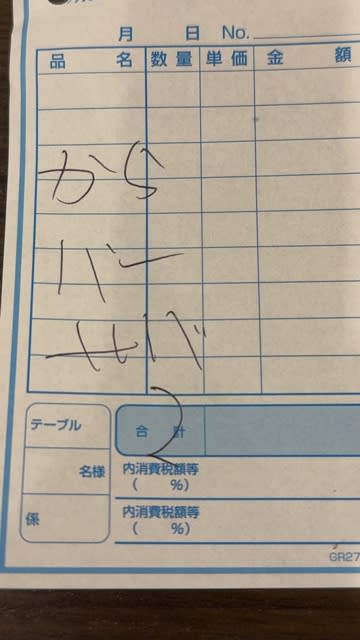 月 日 No.
品名 数量 単価 金額
から
バー
せバ
2
テーブル
合計
名様
内消費税額等
( %)
係
内消費税額等
( %)
GR27